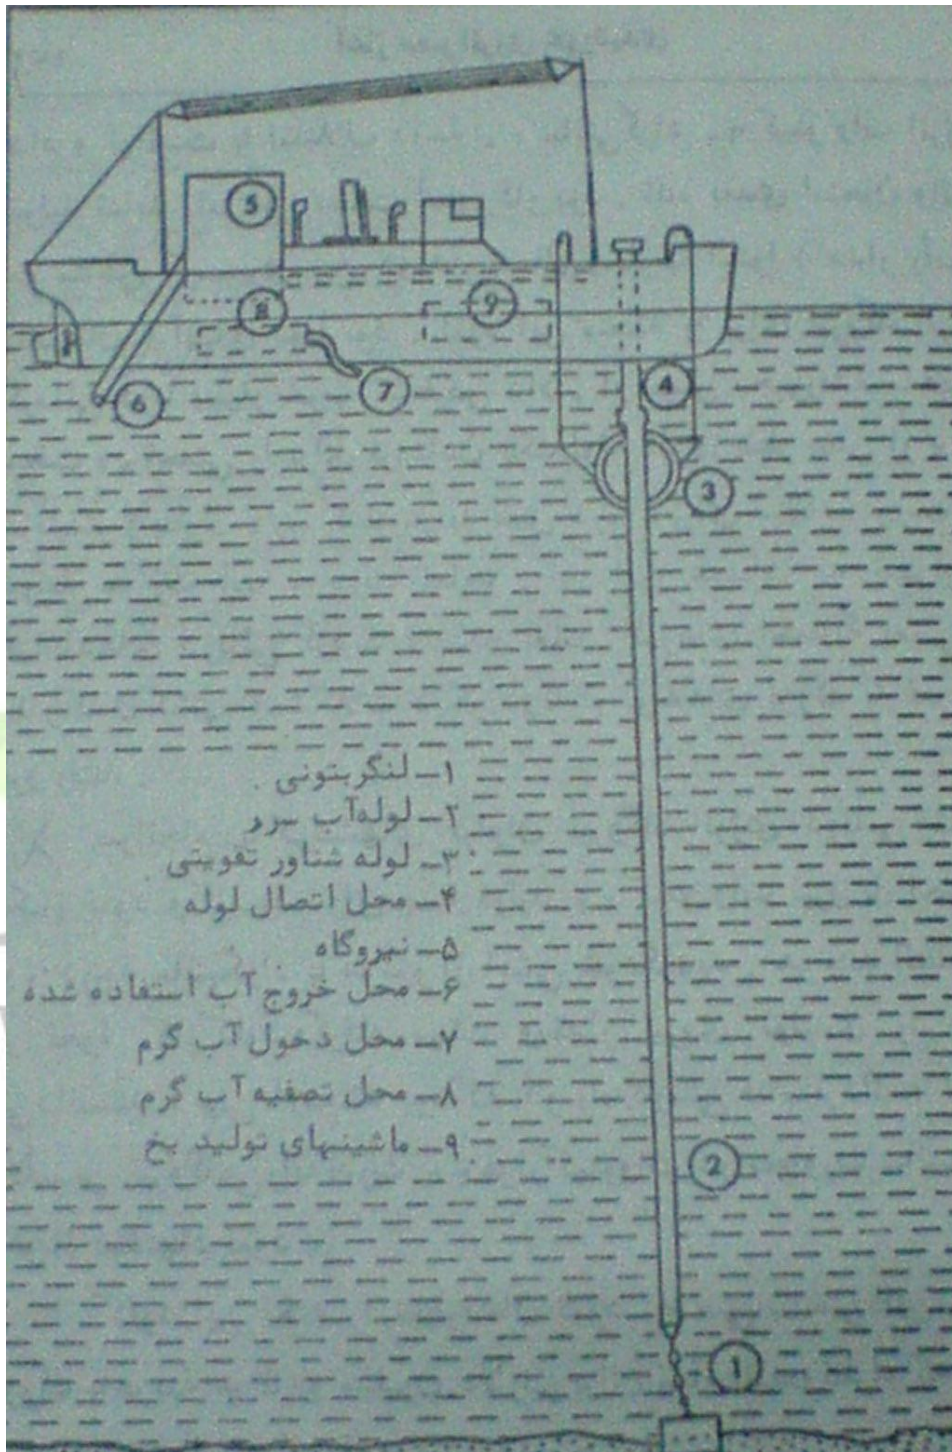 5
8
9
7
6
4
3
۱ـ لنگر بتونی
۲ـ لوله آب سرد
۳ـ لوله شناور تقویتی
۴ـ محل اتصال لوله
۵ـ نیروگاه
۶ـ محل خروج آب استفاده شده
۷ـ محل دخول آب گرم
۸ـ محل تصفیه آب گرم
۹ـ ماشینهای تولید یخ
2
1